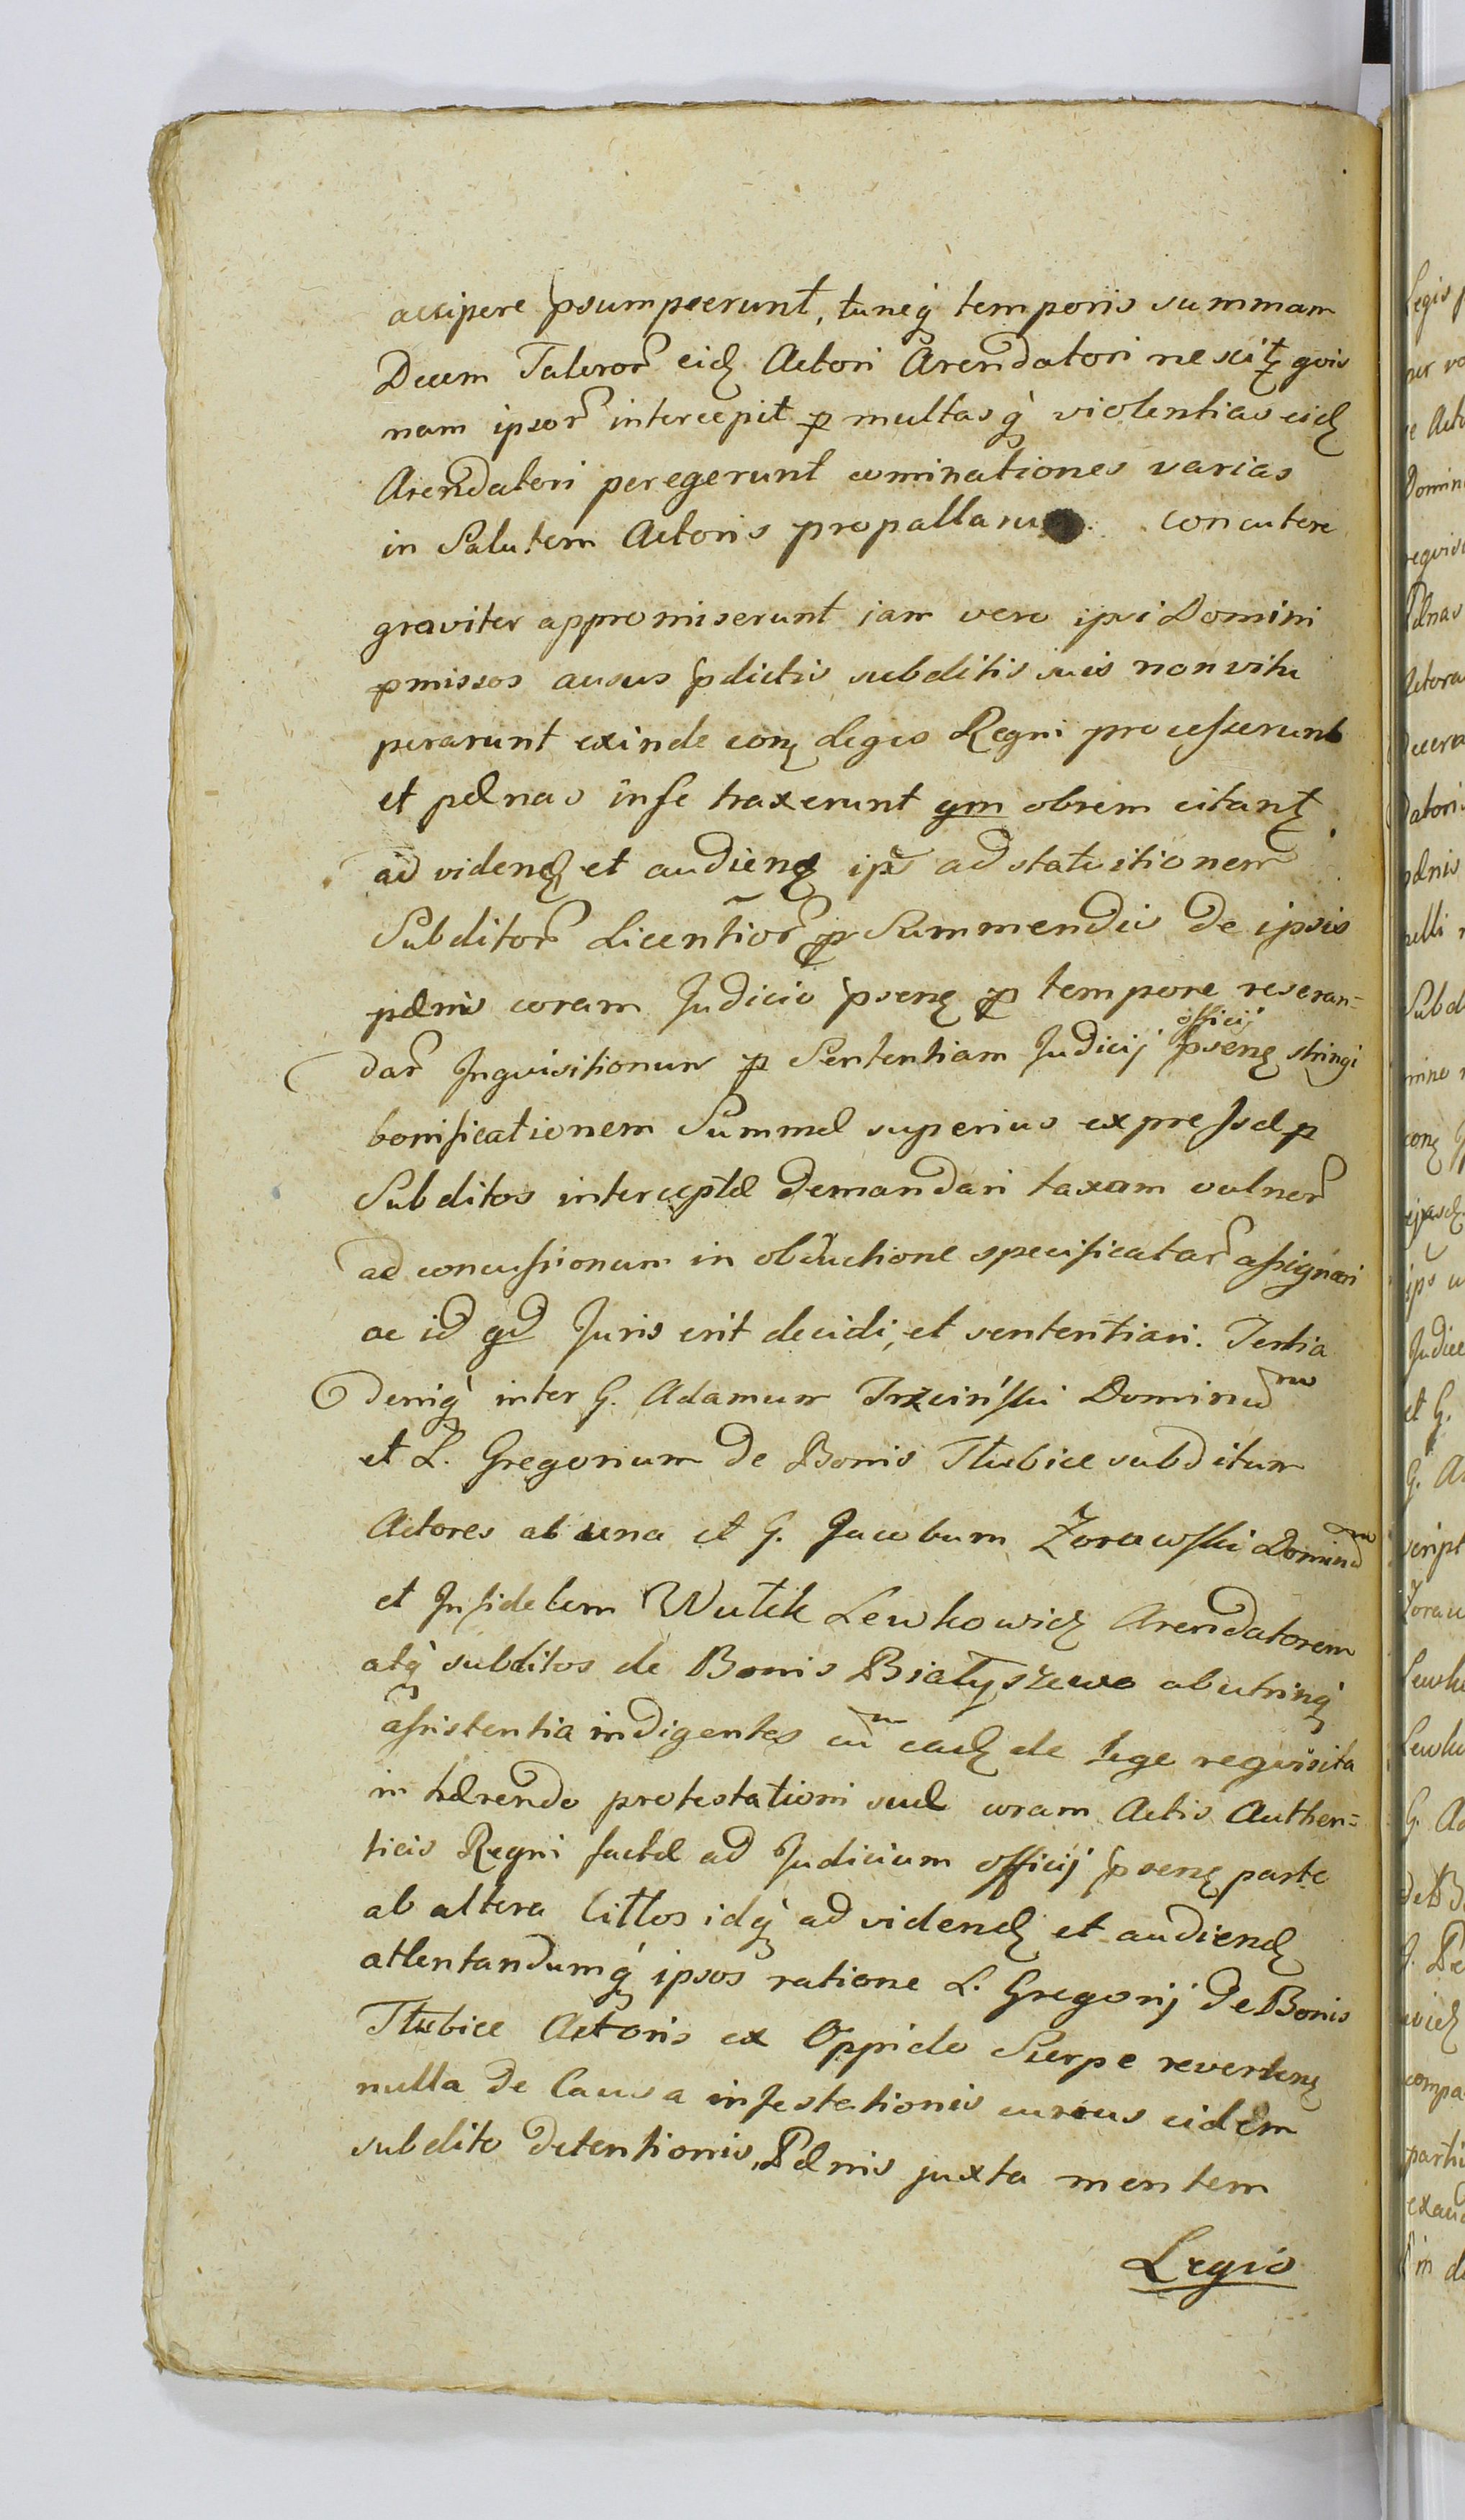 accipere psumpserunt, tuncq́ temporis summam
Decem Taleror eidꝫ Actori Arendatori nescitꝫ quis
nam ipsor intercepit ꝑ multasq́ violentias eidꝫ
Arendatori peregerunt cominationes varias
in Salutem Actoris propallaru . concutere
graviter appromiserunt jam vero ipsi Domini
pmissos ausus pdictis subditis suis non vitu
perarunt exinde conꝫ Leges Regni processerunt
et pænas in se traxerunt qm obrem citantꝫ
ad videndꝫ et audiendꝫ ips ad statuitionem
Subditor Licentior ꝑ Summendis de ipsis
pænis coram Judicio psenꝫ ꝑ tempore reseran=
dar Inquisitionum ꝑ Sententiam Judicij officij psenꝫ stringi
bonificationem Summæ superius expressæ ꝑ
Subditos interceptæ demandari taxam vulner
ac concussionum in obductione specificatar assignari
ac id qd Juris erit decidi, et sententiari. Tertia
deniq́ inter G. Adamum Trzcinski Dominum
et L. Gregorium de Bonis Tłubice subditum
Actores ab una et G. Jacobum Zorawski Dominum
et Infidelem Wulek Lewkowicz Arendatorem
atq́ subditos de Bonis Białyszewo ab utrinq́
assistentia indigentes cum eadꝫ de lege requisita
in hærendo protestationi suæ coram Actis Authen=
ticis Regni factæ ad Judicium officij psenꝫ parte
ab altera Cittos idq́ ad videndꝫ et audiendꝫ
attentandumq́ ipsos ratione L. Gregorij de Bonis
Tłubice Actoris ex Oppido Sierpe revertenꝫ
nulla de Causa infestationis currus eidem
subdito detentionis, Pænis juxta mentem
Legis